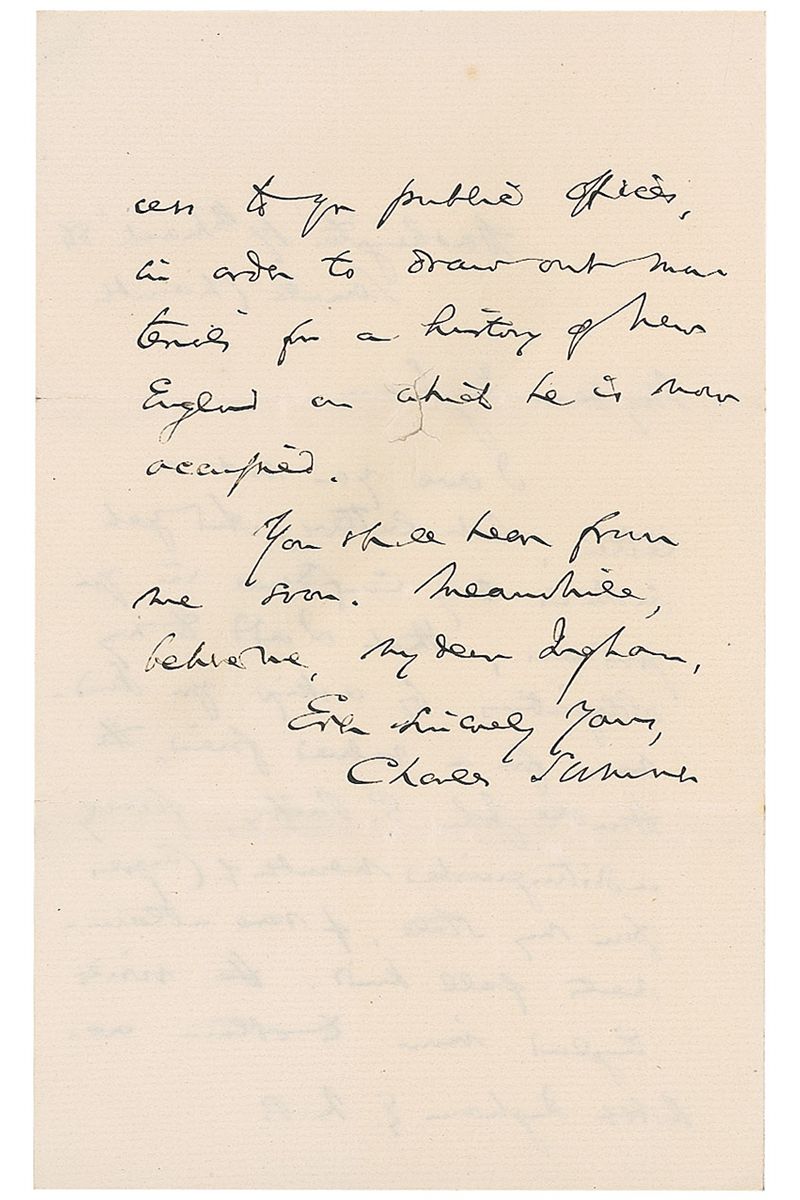 cess to yr public offices,
in order to draw out ma
terials for a history of New
England on which he is now
occupied.
You shall hear from
me soon. Meanwhile,
believe me, my dear Ingham,
Ever sincerely Yours,
Charles Sumner